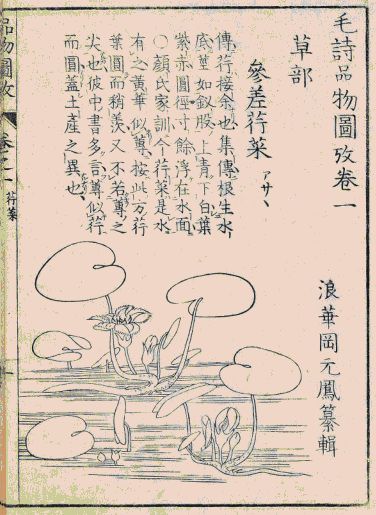 毛詩品物圖攷卷一
草部
浪華岡元鳳纂輯
參差荇菜 アサヽ
傳荇接余也集傳根生水
底莖如釵股上青下白葉
紫赤圓徑寸餘浮在水面
○顏氏家訓今荇菜是水
有之黃華似蓴按此方荇
葉圓而稍羨又不若蓴之
尖也彼中書多言蓴似荇
而圓蓋土產之異也
品物圖攷 卷之一 荇菜
一